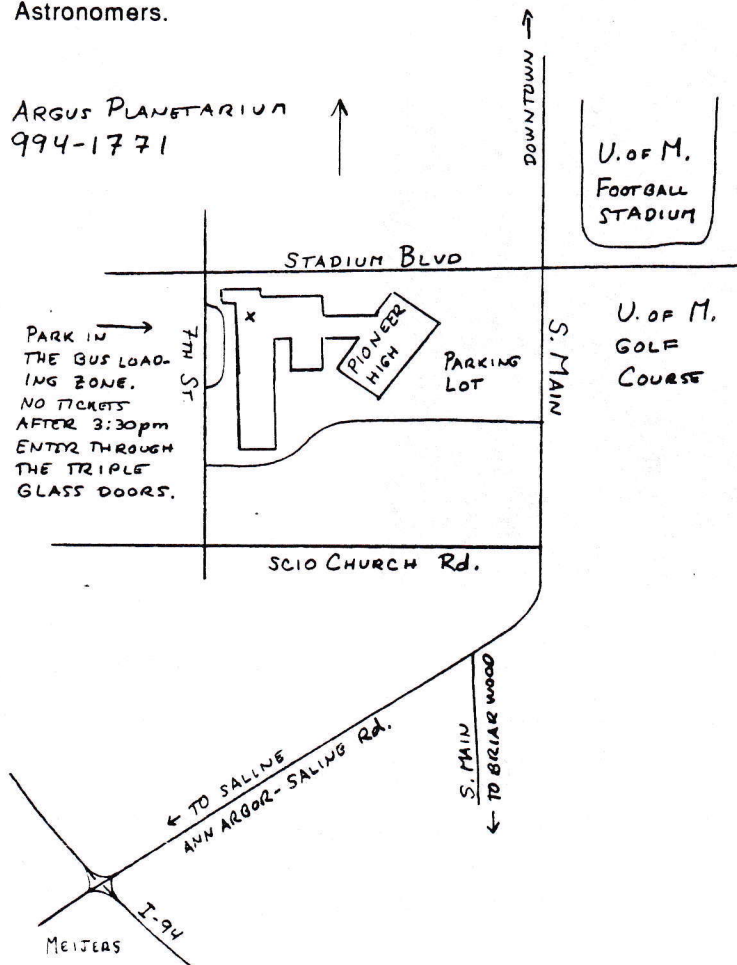 Astronomers.
ARGUS PLANETARIUM
994-1771
DOWNTOWN
U. OF M.
FOOTBALL
STADIUM
STADIUM BLVD
PARK IN
THE BUS LOAD-
ING ZONE.
NO TICKETS
AFTER 3:30pm
ENTER THROUGH
THE TRIPLE
GLASS DOORS.
7TH ST.
x
PIONEER
HIGH
PARKING
LOT
S. MAIN
U. OF M.
GOLF
COURSE
SCIO CHURCH Rd.
TO SALINE
ANN ARBOR-SALINE Rd.
S. MAIN
TO BRIARWOOD
I-94
MEIJERS